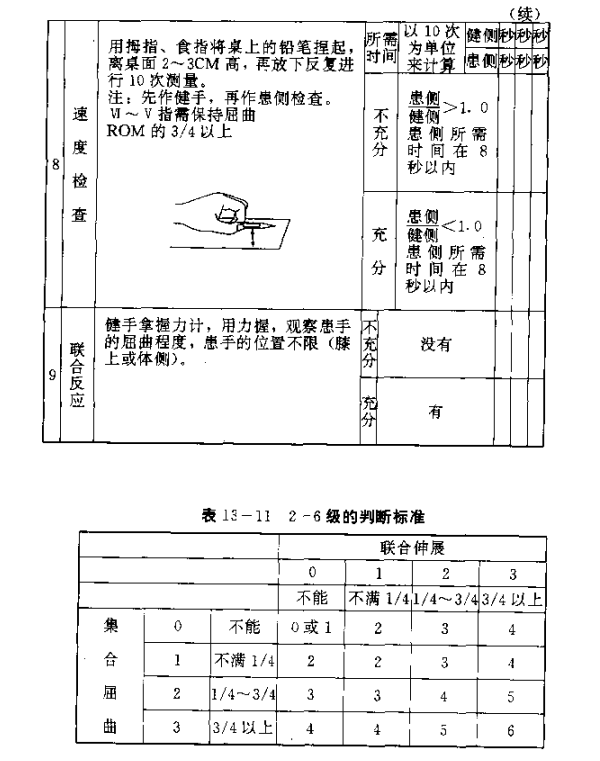 （续）
8
速度检查
用拇指、食指将桌上的铅笔捏起，
离桌面2～3CM高，再放下反复进
行10次测量。
注：先作健手，再作患侧检查。
Ⅵ～Ⅴ指需保持屈曲
ROM的3/4以上
所需
时间
以10次
为单位
来计算
健侧 秒 秒 秒
患侧 秒 秒 秒
不充分
患侧
健侧 >1.0
患侧所需
时间在8
秒以内
充分
患侧
健侧 <1.0
患侧所需
时间在8
秒以内
9
联合反应
健手拿握力计，用力握，观察患手
的屈曲程度，患手的位置不限（膝
上或体侧）。
不充分
没有
充分
有
表13-11 2-6级的判断标准
联合伸展
0 1 2 3
不能 不满1/4 1/4～3/4 3/4以上
集 0 不能 0或1 2 3 4
合 1 不满1/4 2 2 3 4
屈 2 1/4～3/4 3 3 4 5
曲 3 3/4以上 4 4 5 6